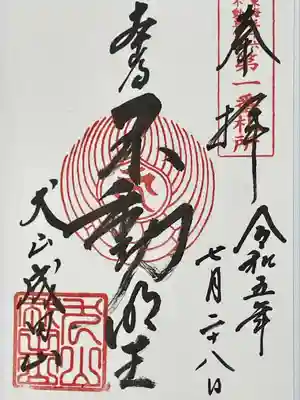 奉拝
令和五年
七月二十八日
不動明王
犬山成田山
第一番札所